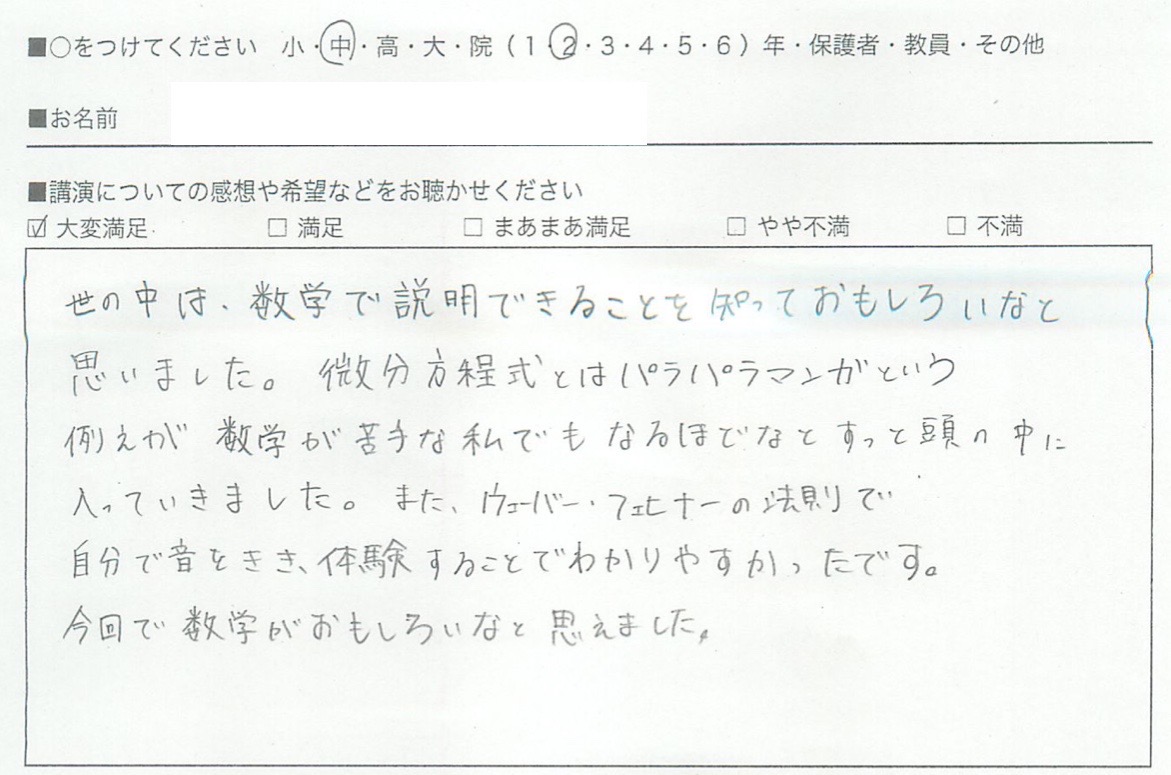 ■○をつけてください 小・中・高・大・院（1・2・3・4・5・6）年・保護者・教員・その他
■お名前
■講演についての感想や希望などをお聴かせください
☑ 大変満足 □ 満足 □ まあまあ満足 □ やや不満 □ 不満
世の中は、数学で説明できることを知っておもしろいなと
思いました。 微分方程式とはパラパラマンガという
例えが 数学が苦手な私でも なるほどなと すっと頭の中に
入っていきました。 また、ウェーバー・フェヒナーの法則で
自分で音をきき、体験することでわかりやすかったです。
今回で 数学がおもしろいなと 思えました。